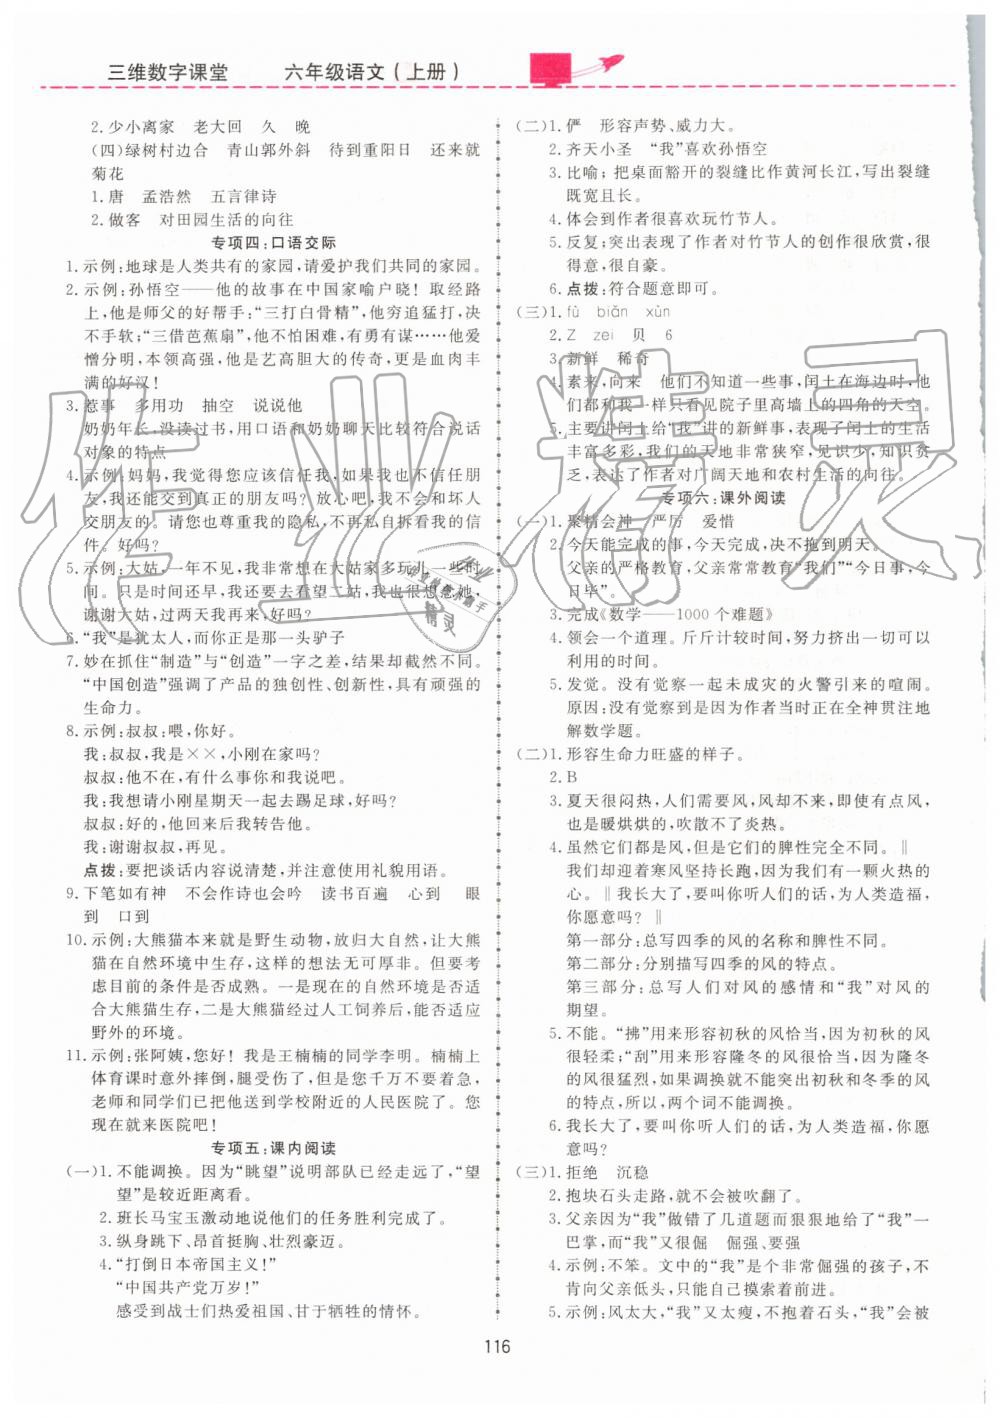 三维数字课堂 六年级语文(上册)
2. 少小离家 老大回 久 晚
(四)绿树村边合 青山郭外斜 待到重阳日 还来就
菊花
1. 唐 孟浩然 五言律诗
2. 做客 对田园生活的向往
专项四:口语交际
1. 示例:地球是人类共有的家园,请爱护我们共同的家园。
2. 示例:孙悟空——他的故事在中国家喻户晓! 取经路
上,他是师父的好帮手:“三打白骨精”,他穷追猛打,决
不手软;“三借芭蕉扇”,他不怕困难,有勇有谋……他爱
憎分明,本领高强,他是艺高胆大的传奇,更是血肉丰
满的好汉!
3. 惹事 多用功 抽空 说说他
奶奶年长,没读过书,用口语和奶奶聊天比较符合说话
对象的特点
4. 示例:妈妈,我觉得您应该信任我,如果我也不信任朋
友,我还能交到真正的朋友吗? 放心吧,我不会和坏人
交朋友的。请您也尊重我的隐私,不再私自拆看我的信
件。好吗?
5. 示例:大姑,一年不见,我非常想在大姑家多玩儿一些时
间。只是时间还早,我还要去看望二姑,我也很想念她,
谢谢大姑,过两天我再来,好吗?
6. “我”是犹太人,而你是那一头驴子
7. 妙在抓住“制造”与“创造”一字之差,结果却截然不同。
“中国创造”强调了产品的独创性、创新性,具有顽强的
生命力。
8. 示例:叔叔:喂,你好。
我:叔叔,我是××,小刚在家吗?
叔叔:他不在,有什么事你和我说吧。
我:我想请小刚星期天一起去踢足球,好吗?
叔叔:好的,他回来后我转告他。
我:谢谢叔叔,再见。
点拨:要把谈话内容说清楚,并注意使用礼貌用语。
9. 下笔如有神 不会作诗也会吟 读书百遍 心到 眼
到 口到
10. 示例:大熊猫本来就是野生动物,放归大自然,让大熊
猫在自然环境中生存,这样的想法无可厚非。但要考
虑目前的条件是否成熟。一是现在的自然环境是否适
合大熊猫生存,二是大熊猫经过人工饲养后,能否适应
野外的环境。
11. 示例:张阿姨,您好! 我是王楠楠的同学李明。楠楠上
体育课时意外摔倒,腿受伤了。但是您千万不要着急,
老师和同学已经把她送到学校附近的人民医院了。您
现在就来医院吧!
专项五:课内阅读
(一)1. 不能调换。因为“眺望”说明部队已经走远了,“望
望”是较近距离看。
2. 班长马宝玉激动地说他们的任务胜利完成了。
3. 纵身跳下、昂首挺胸、壮烈豪迈。
4. “打倒日本帝国主义!”
“中国共产党万岁!”
感受到战士们热爱祖国、甘于牺牲的情怀。
(二)1. 俨 形容声势、威力大。
2. 齐天小圣 “我”喜欢孙悟空
3. 比喻;把桌面豁开的裂缝比作黄河长江,写出裂缝
既宽且长。
4. 体会到作者很喜欢玩竹节人。
5. 反复;突出表现了作者对竹节人的创作很欣赏,很
得意,很自豪。
6. 点拨:符合题意即可。
(三)1. fù biǎn xùn
2. Z zei 贝 6
3. 新鲜 稀奇
4. 素来,向来 他们不知道一些事,闰土在海边时,他
们都和我一样只看见院子里高墙上的四角的天空。
5. 主要讲闰土给“我”讲的新鲜事,表现了闰土的生活
丰富多彩,我们的天地非常狭窄,见识少,知识贫
乏,表达了作者对广阔天地和农村生活的向往。
专项六:课外阅读
(一)1. 聚精会神 严厉 爱惜
2. 今天能完成的事,今天完成,决不拖到明天。
父亲的严格教育,父亲常常教育“我们”“今日事,今
日毕”。
3. 完成《数学——1000个难题》
4. 领会一个道理。斤斤计较时间,努力挤出一切可以
利用的时间。
5. 发觉。没有觉察一起未成灾的火警引来的喧闹。
原因:没有觉察到是因为作者当时正在全神贯注地
解数学题。
(二)1. 形容生命力旺盛的样子。
2. B
3. 夏天很闷热,人们需要风,风却不来,即使有点风,
也是暖烘烘的,吹散不了炎热。
4. 虽然它们都是风,但是它们的脾性完全不同。‖
我们却迎着寒风坚持长跑,因为我们有一颗火热的
心。‖我长大了,要叫你听人们的话,为人类造福,
你愿意吗? ‖
第一部分:总写四季的风的名称和脾性不同。
第二部分:分别描写四季的风的特点。
第三部分:总写人们对风的感情和“我”对风的
期望。
5. 不能。“拂”用来形容初秋的风恰当,因为初秋的风
很轻柔;“刮”用来形容隆冬的风恰当,因为隆冬的
风很猛烈,如果调换就不能突出初秋和隆冬的风的
特点,所以,两个词不能调换。
6. 我长大了,要叫你听人们的话,为人类造福,你愿
意吗?
(三)1. 拒绝 沉稳
2. 抱块石头走路,就不会被吹翻了。
3. 父亲因为“我”做错了几道题而狠狠地给了“我”一
巴掌,而“我”又很倔 倔强、要强
4. 示例:不笨。文中的“我”是个非常倔强的孩子,不
肯向父亲低头,只能自己摸索着前进。
5. 示例:风太大,“我”又太瘦,不抱着石头,“我”会被
116
作业精灵
作业
精灵